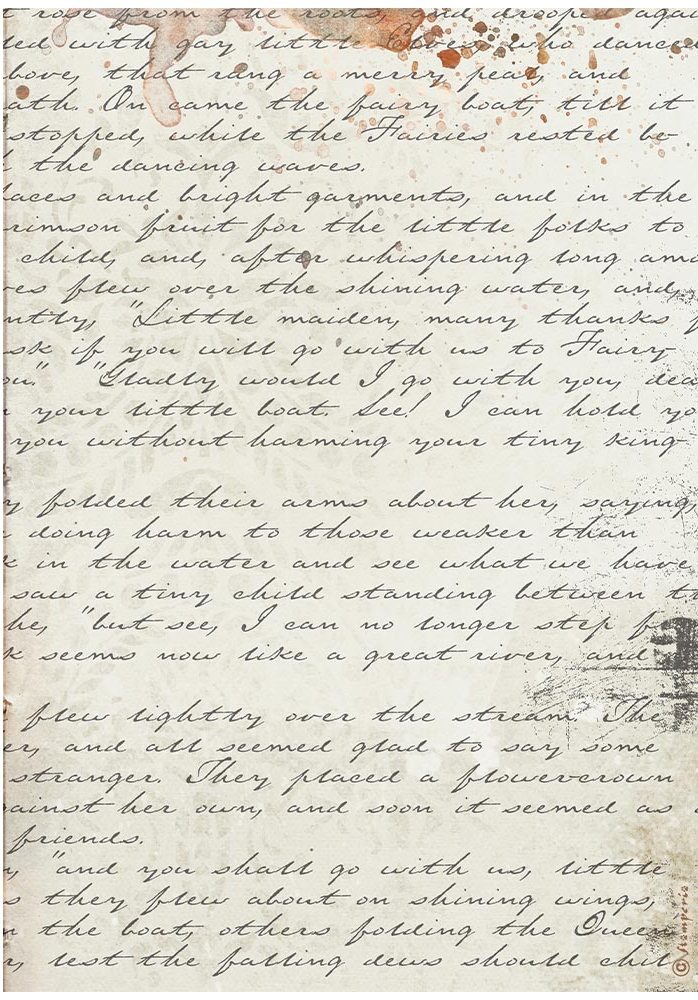 t rose from the roots, and drooped aga
led with gay little Elves who dance
bove, that rang a merry peal, and
ath. On came the fairy boat, till it
stopped, while the Fairies rested be-
the dancing waves.
faces and bright garments, and in the
rimson fruit for the little folks to
child, and, after whispering long amo
ves flew over the shining water, and,
ntly, "Little maiden, many thanks f
sk if you will go with us to Fairy-
ou." "Gladly would I go with you, dea
your little boat. See! I can hold yo
you without harming your tiny king-
y folded their arms about her, saying,
doing harm to those weaker than
k in the water and see what we have
saw a tiny child standing between th
he, "but see, I can no longer step f
k seems now like a great river, and
flew lightly over the stream. The
er, and all seemed glad to say some
stranger. They placed a flower-crown
gainst her own, and soon it seemed as
friends.
n, "and you shall go with us, little
s they flew about on shining wings,
n the boat, others folding the Queen
r, lest the falling dews should chil
© Stamperia